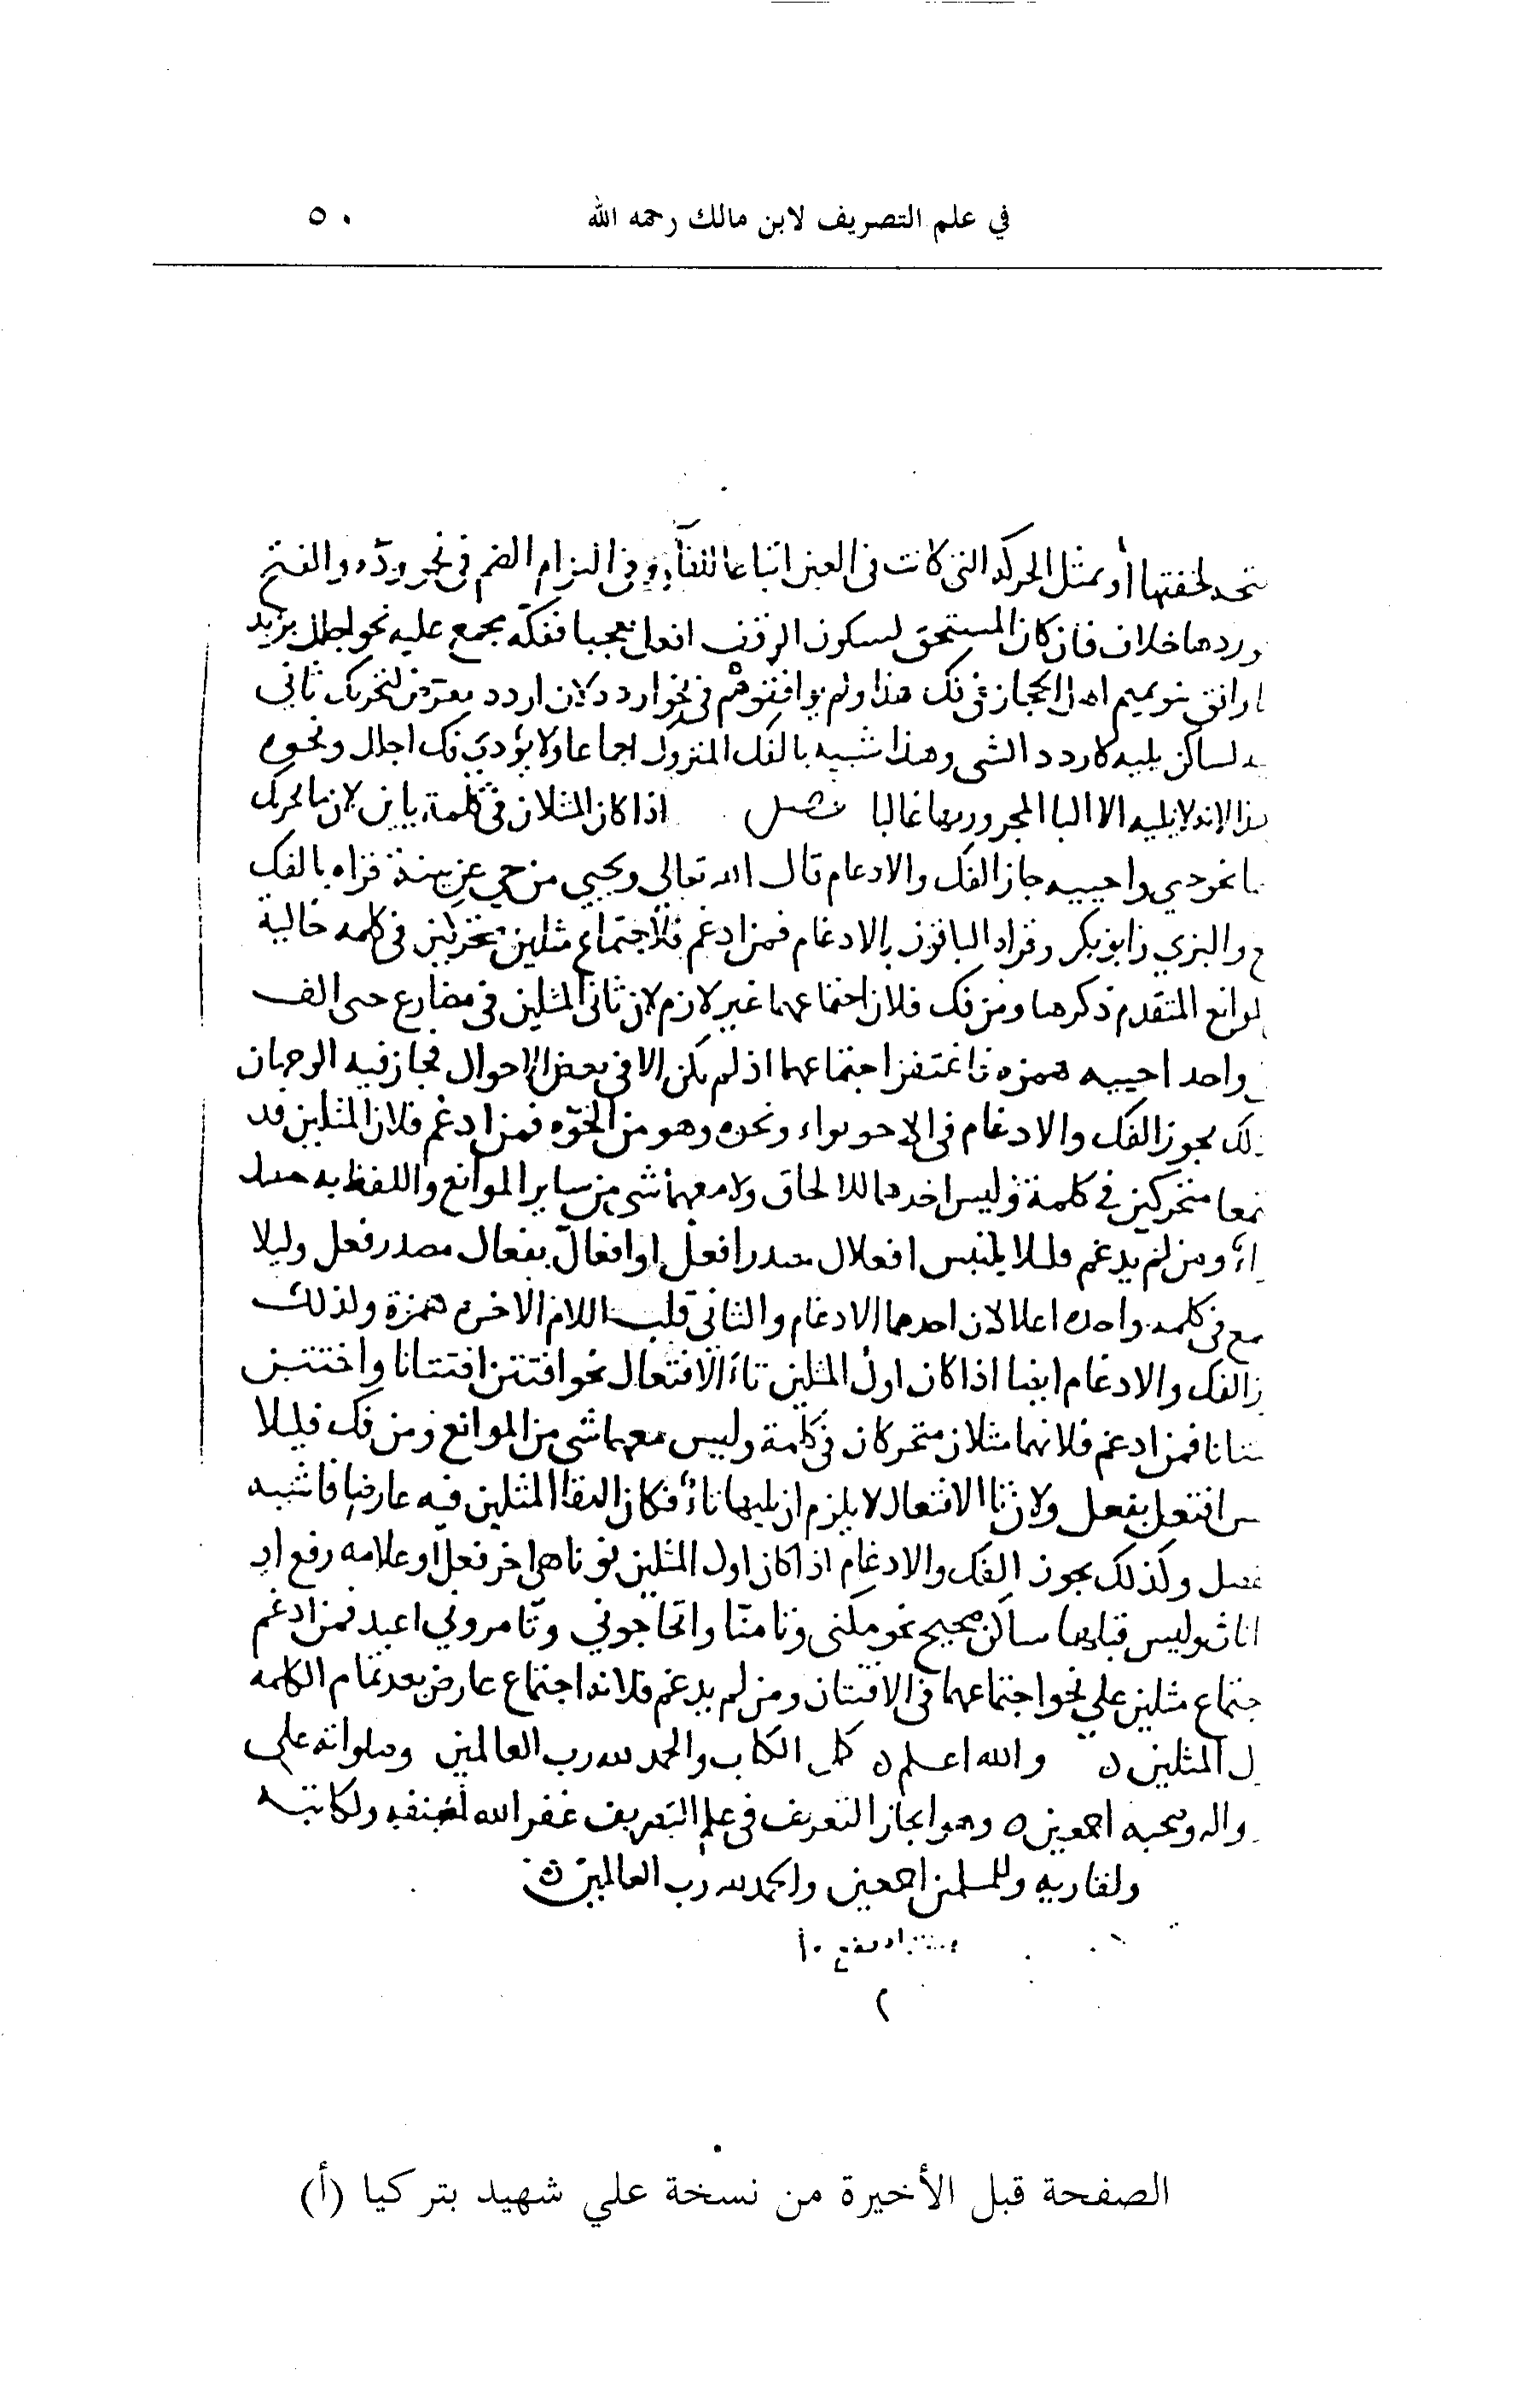 في علم التصريف لابن مالك رحمه الله ٥٠
لخفتها أو بمثل الحركة التي كانت في العين اتباعا للفاء وفي التزام الضم في نحو ردّه والفتح
وردها خلاف فان كان المستحق لسكون الوقف افعل تعجبا ففكه مجمع عليه نحو اجلل بزيد
وافق بنو تميم اهل الحجاز في فك هذا ولم يوافقوهم في نحو اردد لان اردد يعترض لتحريك ثاني
لساكن يليه كاردد الشي وهذا شبيه بالفك المتروك اجماعا ولا يؤدي فك اجلل ونحوه
الا انه لا يليه الا البا المجرور بها غالبا فصل اذا كان المثلان في كلمة ياين لازما تحرك
نحو حيي واحييه جاز الفك والادغام قال الله تعالي ويحيي من حي عن بينة قراه بالفك
والبزي وابو بكر وقراه الباقون بالادغام فمن ادغم فلاجتماع مثلين متحركين في كلمه خالية
الموانع المتقدم ذكرها ومن فك فلان اجتماعهما غير لازم لان ثاني المثلين في مضارع حيي الف
واحد احييه همزه فاغتفر اجتماعهما اذ لم يكن الا في بعض الاحوال فجاز فيه الوجهان
لك يجوز الفك والادغام في الاحوواء ونحوه وهو من الحوّه فمن ادغم فلان المثلين قد
متحركين في كلمة وليس احدهما للالحاق ولا معهما شي من ساير الموانع واللفظ به
ومن لم يدغم فلئلا يلتبس افعلال مصدر افعلّ او افعالّ بفعال مصدر فعل وليلا
مع في كلمه واحده اعلالان احدهما الادغام والثاني قلب اللام الاخري همزة ولذلك
الفك والادغام ايضا اذا كان اول المثلين تاء الافتعال نحو افتتن افتتانا واختتن
تتانا فمن ادغم فلانهما مثلان متحركان في كلمة وليس معهما شي من الموانع ومن فك فليلا
افتعل بفعل ولان تا الافتعال لا يلزم ان يليها تاء فكان التقا المثلين فيه عارضا فاشبه
وكذلك يجوز الفك والادغام اذا كان اول المثلين نونا هي اخر فعل او علامه رفع او
اناث وليس قبلها ساكن صحيح نحو مكني وتامنّا واتحاجوني وتامروني اعبد فمن ادغم
جتماع مثلين علي نحو اجتماعهما في الاقتتان ومن لم يدغم فلانه اجتماع عارض بعد تمام الكلمه
المثلين ه والله اعلم ه كمل الكتاب والحمد لله رب العالمين وصلواته علي
واله وصحبه اجمعين ه وهو ايجاز التعريف في علم التصريف غفر الله لمصنفه ولكاتبه
ولقاريه وللمسلمين اجمعين والحمد لله رب العالمين
الصفحة قبل الأخيرة من نسخة علي شهيد بتركيا (أ)